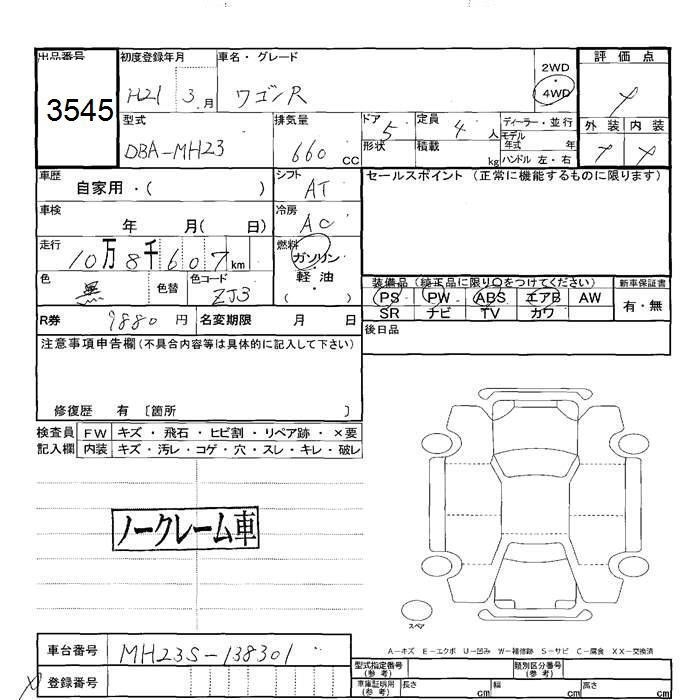 出品番号 初度登録年月 車名・グレード
3545 H21 3月 ワゴンR 2WD ・ 4WD
評価点
型式 排気量 ドア 定員 ディーラー・並行
DBA-MH23 660 cc 5 4人 モデル年式 年
形状 積載 kg ハンドル 左・右
外装 内装
車歴 自家用・( ) シフト AT
セールスポイント (正常に機能するものに限ります)
車検 年 月( 日) 冷房 AC
走行 10万8千607km 燃料 ガソリン・軽油・( )
色 黒 色替 色コード ZJ3
装備品 (純正品に限り○をつけてください) 新車保証書
PS PW ABS エアB AW 有・無
SR ナビ TV カワ
R券 9880円 名変期限 月 日
後日品
注意事項申告欄(不具合内容等は具体的に記入して下さい)
修復歴 有 〔箇所 〕
検査員 FW キズ・飛石・ヒビ割・リペア跡・×要
記入欄 内装 キズ・汚レ・コゲ・穴・スレ・キレ・破レ
ノークレーム車
スペア
A-キズ E-エクボ U-凹み W-補修跡 S-サビ C-腐食 XX-交換済
車台番号 MH23S-138301
型式指定番号(参考) 類別区分番号(参考)
登録番号
車庫証明用(参考) 長さ cm 幅 cm 高さ cm